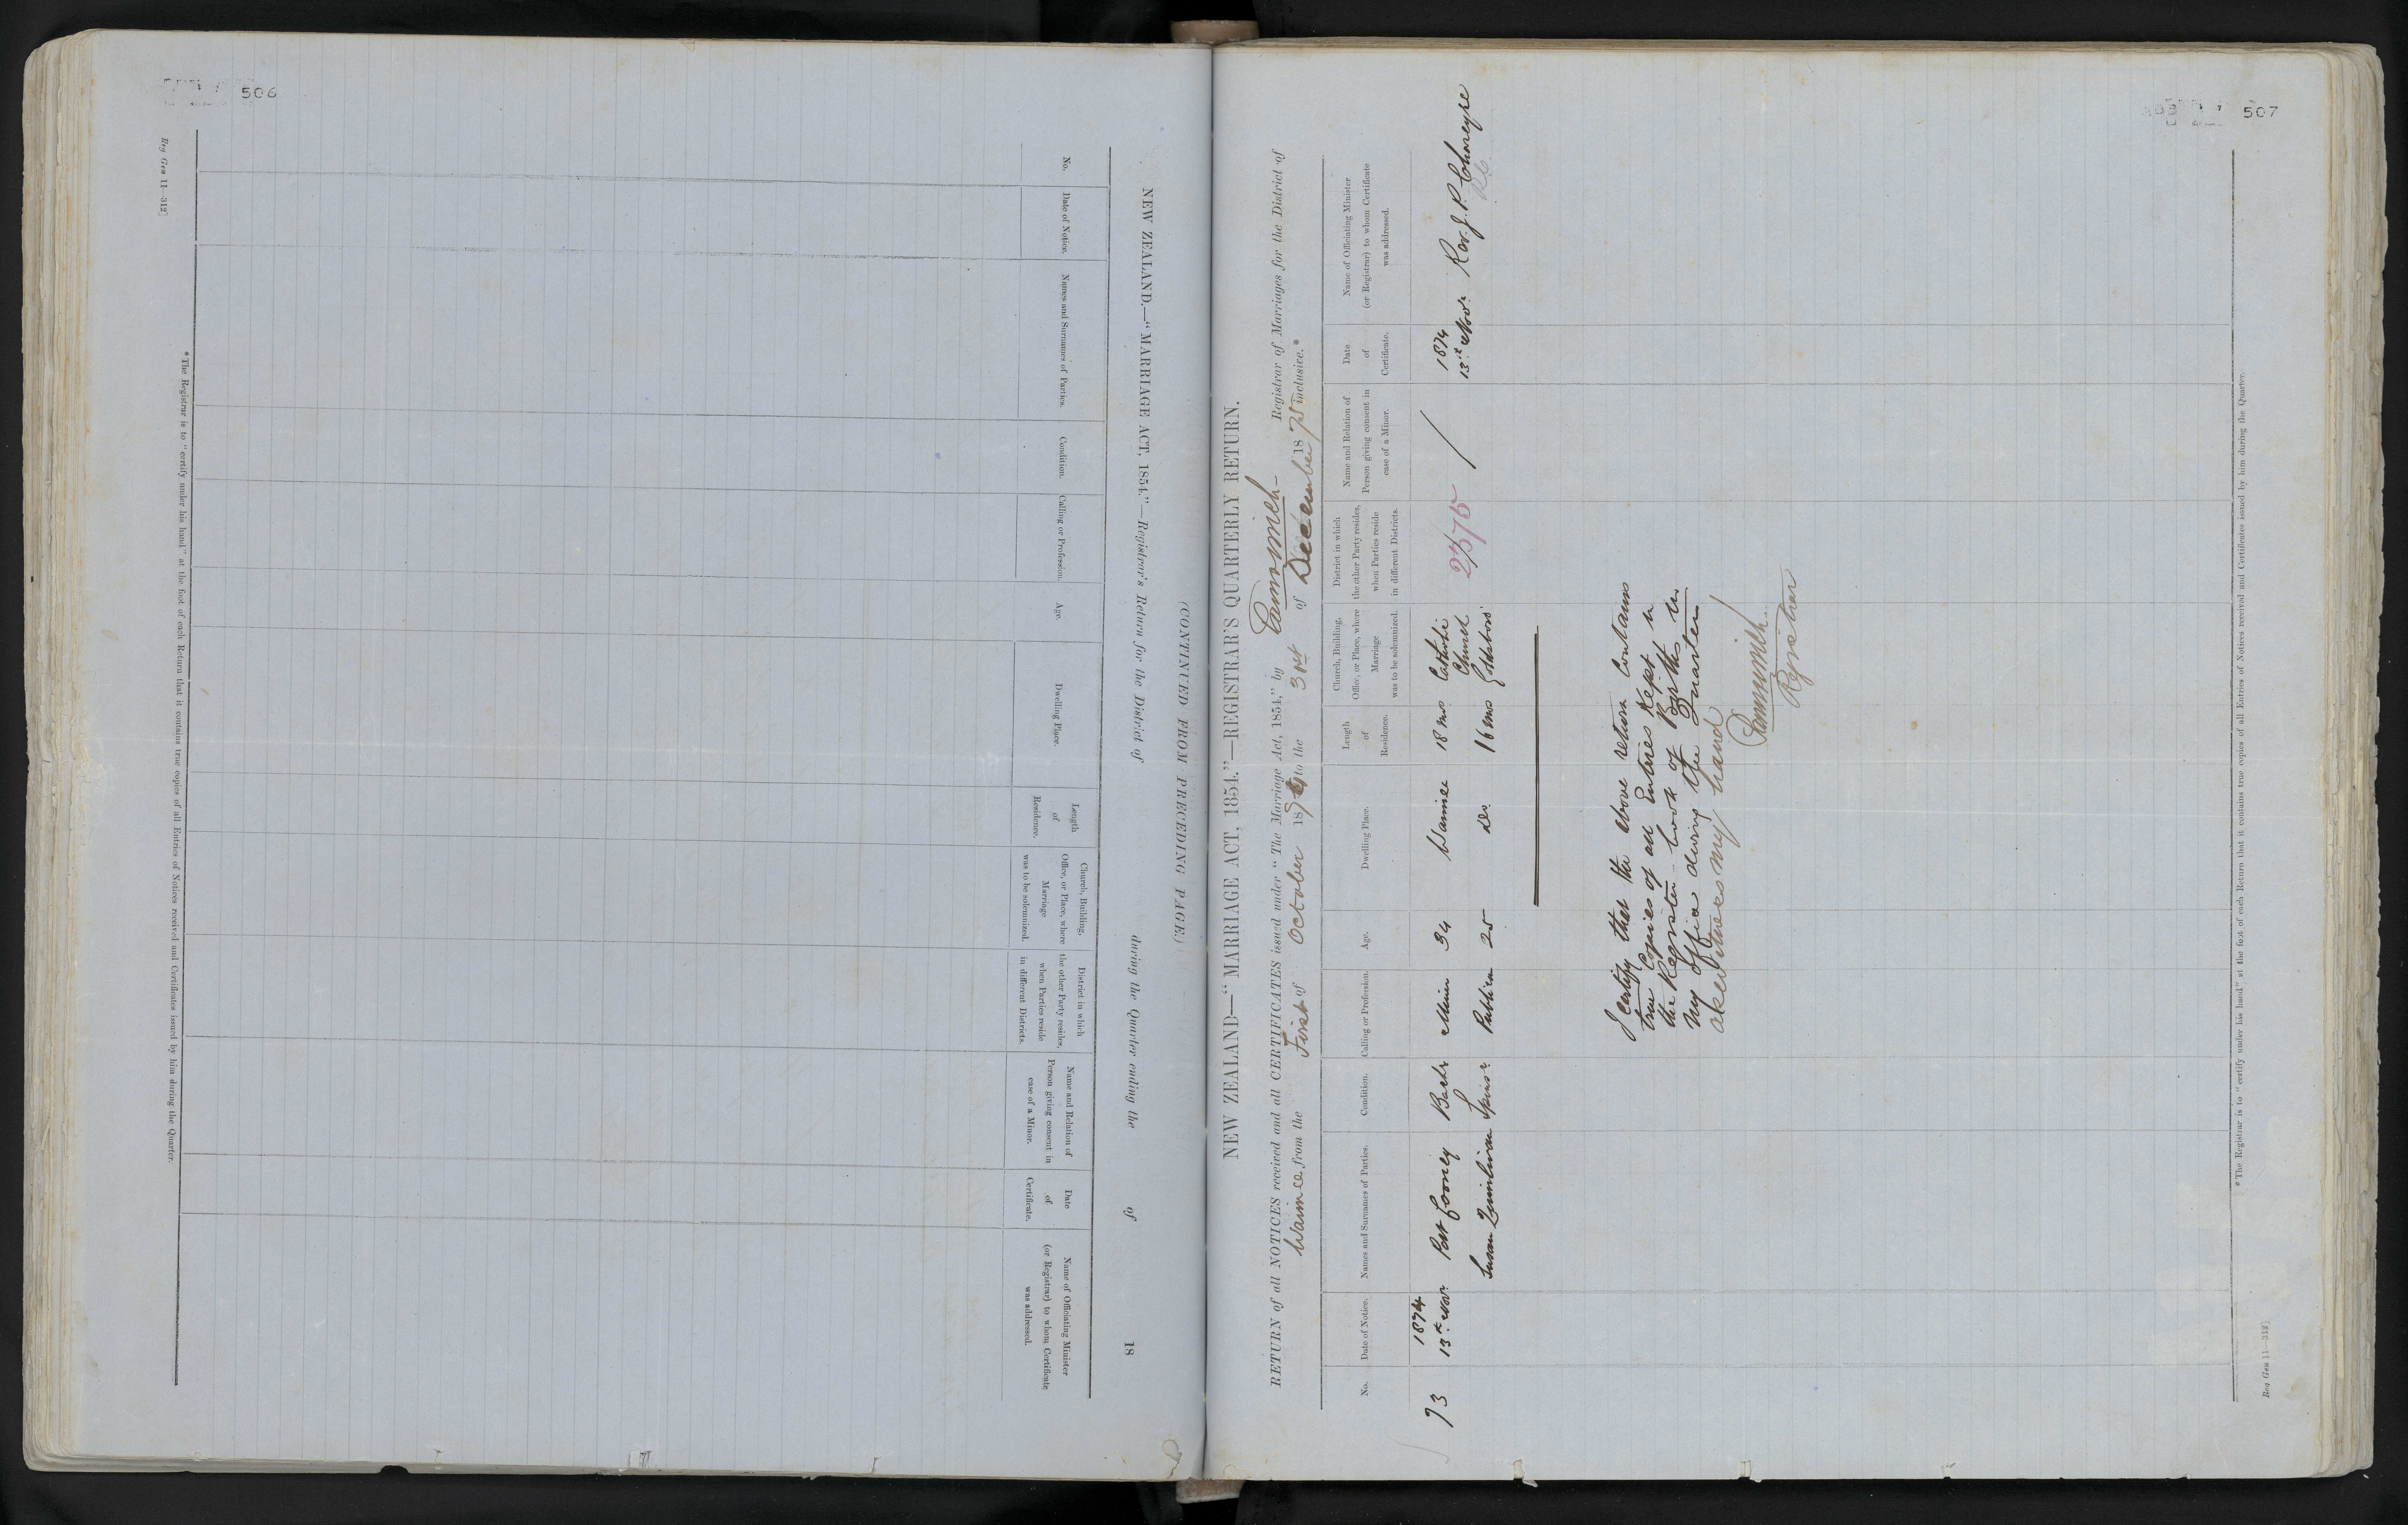 506
Reg Gen 11—312]
NEW ZEALAND.—"MARRIAGE ACT, 1854."—Registrar's Return for the District of during the Quarter ending the of 18
(CONTINUED FROM PRECEDING PAGE.)
No.
Date of Notice.
Names and Surnames of Parties.
Condition.
Calling or Profession.
Age.
Dwelling Place.
Length
of
Residence.
Church, Building,
Office, or Place, where
Marriage
was to be solemnized.
District in which
the other Party resides,
when Parties reside
in different Districts.
Name and Relation of
Person giving consent in
case of a Minor.
Date
of
Certificate.
Name of Officiating Minister
(or Registrar) to whom Certificate
was addressed.
*The Registrar is to "certify under his hand" at the foot of each Return that it contains true copies of all Entries of Notices received and Certificates issued by him during the Quarter.
507
NEW ZEALAND—"MARRIAGE ACT, 1854."—REGISTRAR'S QUARTERLY RETURN.
RETURN of all NOTICES received and all CERTIFICATES issued under "The Marriage Act, 1854," by Registrar of Marriages for the District of
Waimea from the First of October 18 to the 31st of December 18 inclusive.*
No.
Date of Notice.
Names and Surnames of Parties.
Condition.
Calling or Profession.
Age.
Dwelling Place.
Length
of
Residence.
Church, Building,
Office, or Place, where
Marriage
was to be solemnized.
District in which
the other Party resides,
when Parties reside
in different Districts.
Name and Relation of
Person giving consent in
case of a Minor.
Date
of
Certificate.
Name of Officiating Minister
(or Registrar) to whom Certificate
was addressed.
1874 1874
73 13th Novr Patk Cooney Bachr Miner 34 Waimea 18 mos Catholic 2375 / 13th Novr Rev. J. P.
Church
Susan Quinlivan Spinsr Publican 25 Do. 16 mos Goldsboro'
I certify that the above return contains
true Copies of all Entries kept in
the Register book of in
my office during the Quarter
my hand
Registrar
*The Registrar is to "certify under his hand" at the foot of each Return that it contains true copies of all Entries of Notices received and Certificates issued by him during the Quarter.
Reg Gen 11—312]